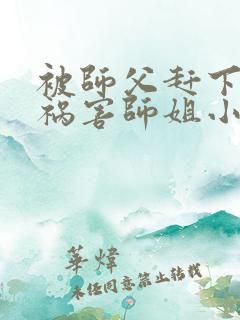 被師父赶下
祸害師姐小
華煒
未经同意禁止转载